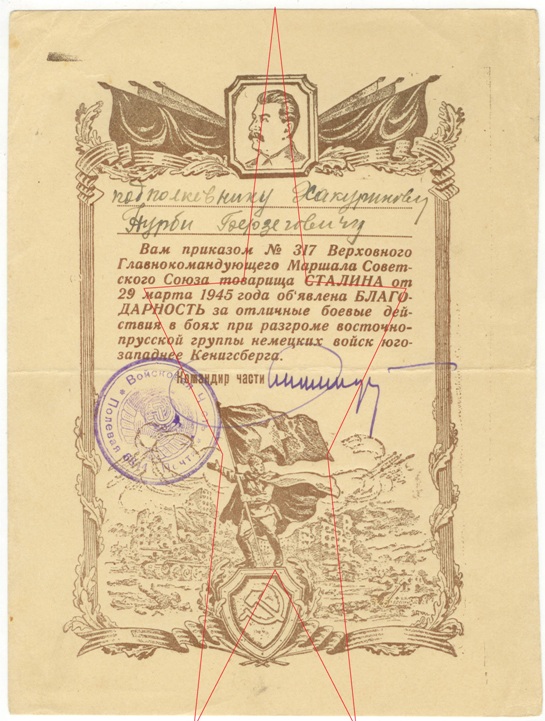 подполковнику Хакуринову
Нурби
Вам приказом № 317 Верховного
Главнокомандующего Маршала Совет-
ского Союза товарища СТАЛИНА от
29 марта 1945 года об'явлена БЛАГО-
ДАРНОСТЬ за отличные боевые дей-
ствия в боях при разгроме восточно-
прусской группы немецких войск юго-
западнее Кенигсберга.
Командир части
Полевая Почта